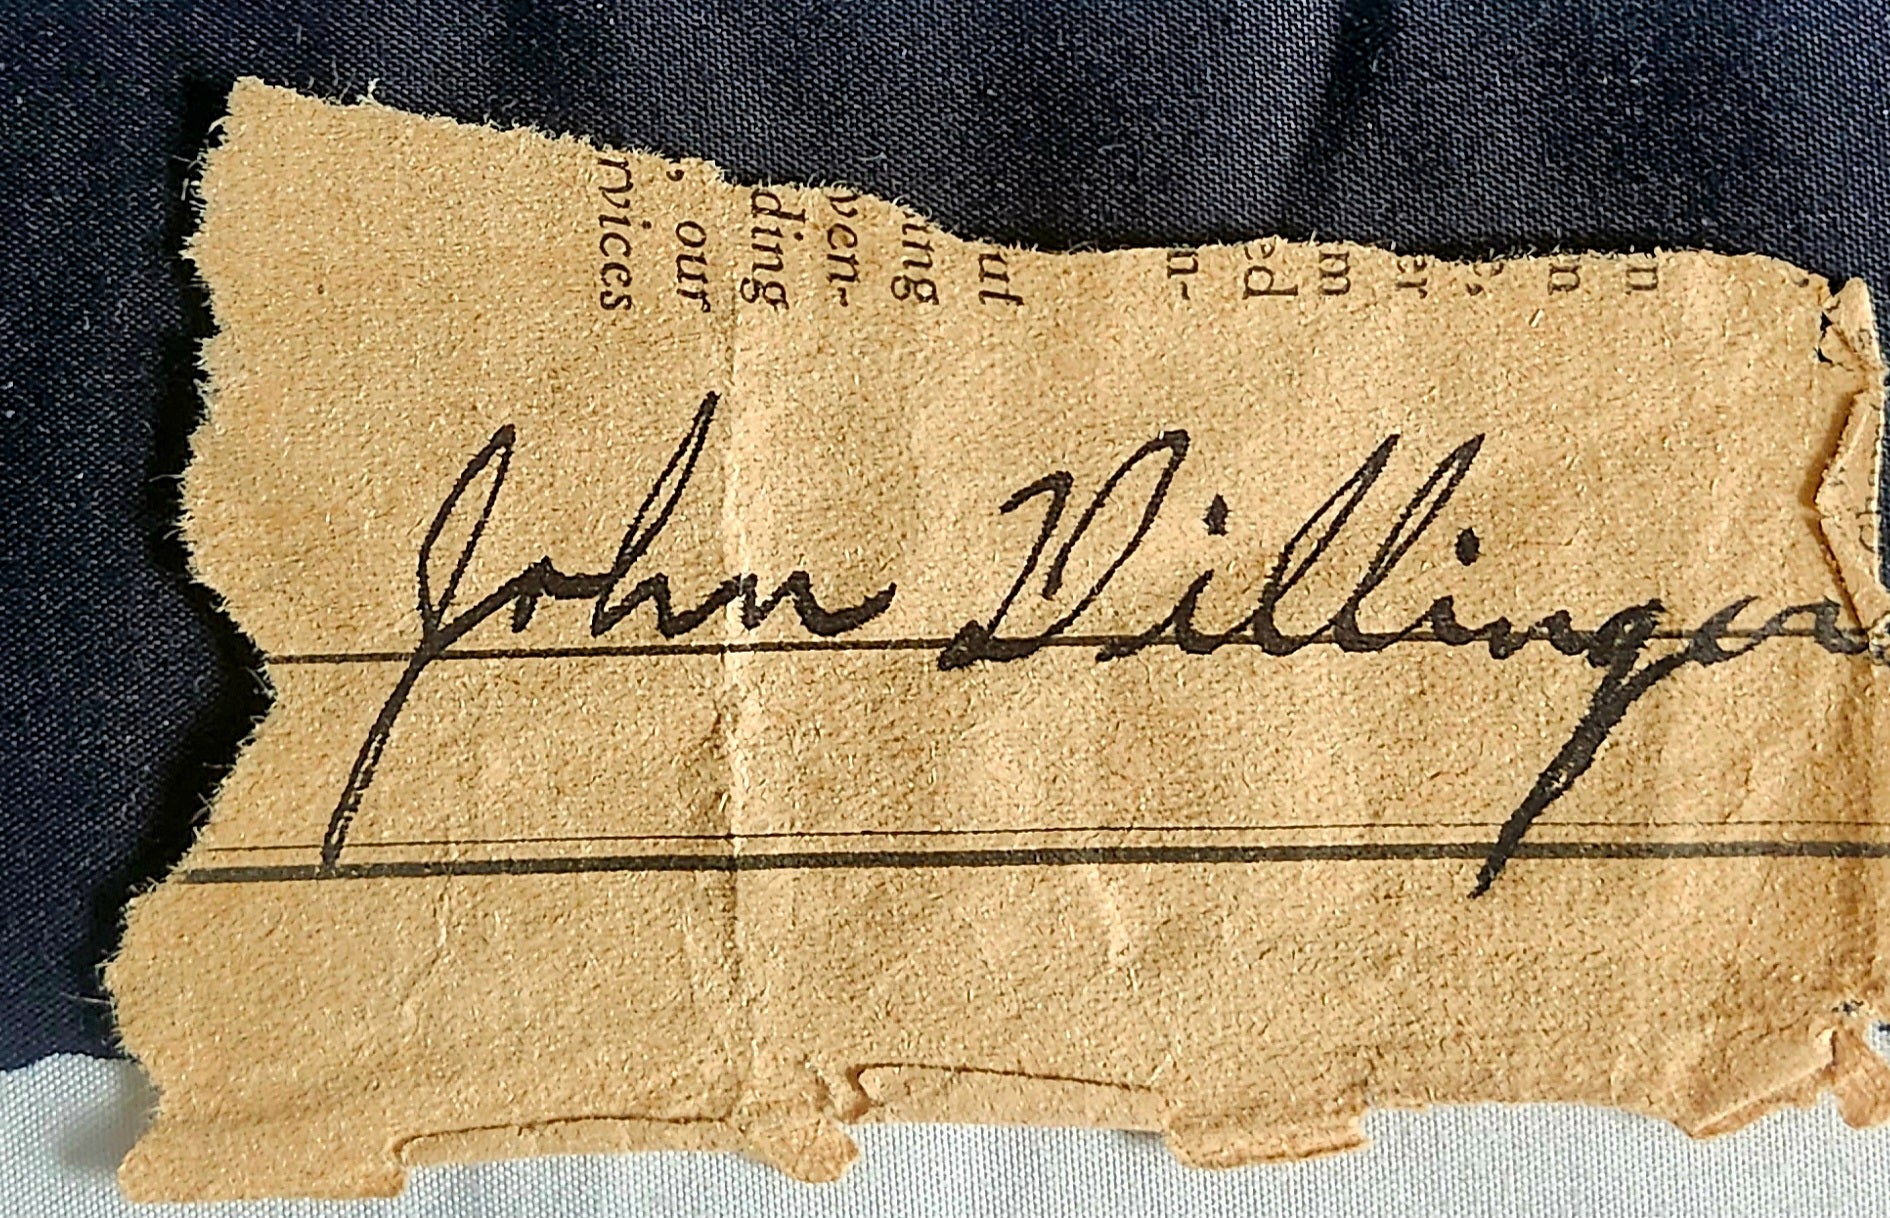 rvices
, our
ding
ven-
ing
ul
n-
ed
m
er
e,
n
n
John Dillinger